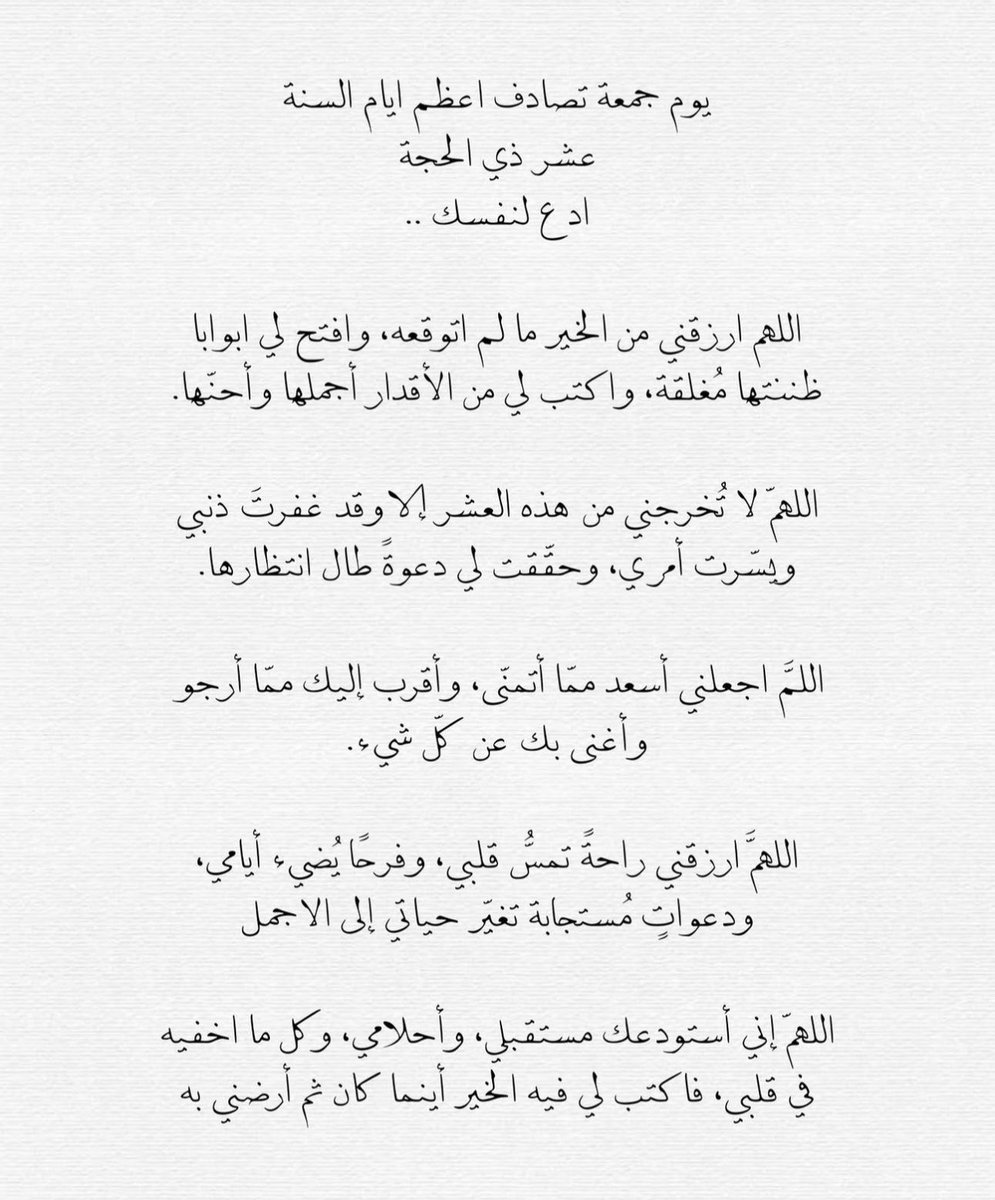 يوم جمعة تصادف اعظم ايام السنة
عشر ذي الحجة
ادع لنفسك ..
اللهم ارزقني من الخير ما لم اتوقعه، وافتح لي ابوابا
ظننتها مُغلقة، واكتب لي من الأقدار أجملها وأحنّها.
اللهمّ لا تُخرجني من هذه العشر إلا وقد غفرتَ ذنبي
ويسّرت أمري، وحقّقت لي دعوةً طال انتظارها.
اللمَّ اجعلني أسعد ممّا أتمنّى، وأقرب إليك ممّا أرجو
وأغنى بك عن كلّ شيء.
اللهمَّ ارزقني راحةً تمسُّ قلبي، وفرحًا يُضيء أيامي،
ودعواتٍ مُستجابة تغيّر حياتي إلى الاجمل
اللهمّ إني أستودعك مستقبلي، وأحلامي، وكل ما اخفيه
في قلبي، فاكتب لي فيه الخير أينما كان ثم أرضني به